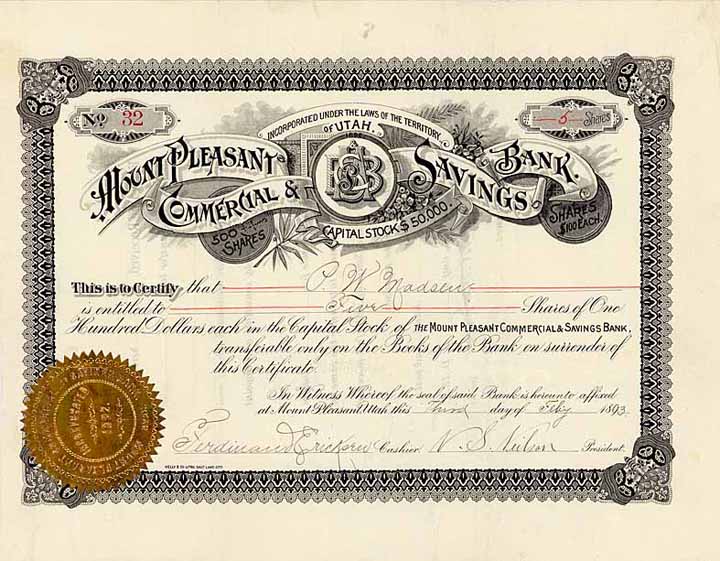 No 32
5 Shares
INCORPORATED UNDER THE LAWS OF THE TERRITORY
OF UTAH.
MOUNT PLEASANT
COMMERCIAL & SAVINGS BANK.
500 SHARES
CAPITAL STOCK $50,000.
SHARES $100 EACH.
This is to Certify that P. W. Madsen
is entitled to Five Shares of One
Hundred Dollars each in the Capital Stock of THE MOUNT PLEASANT COMMERCIAL & SAVINGS BANK,
transferable only on the Books of the Bank on surrender of
this Certificate.
In Witness Whereof the seal of said Bank is hereunto affixed
at Mount Pleasant, Utah this Third day of Feby 1893.
Ferdinand Ericksen Cashier N. S. Neilson President.
INCORPORATED
1892.